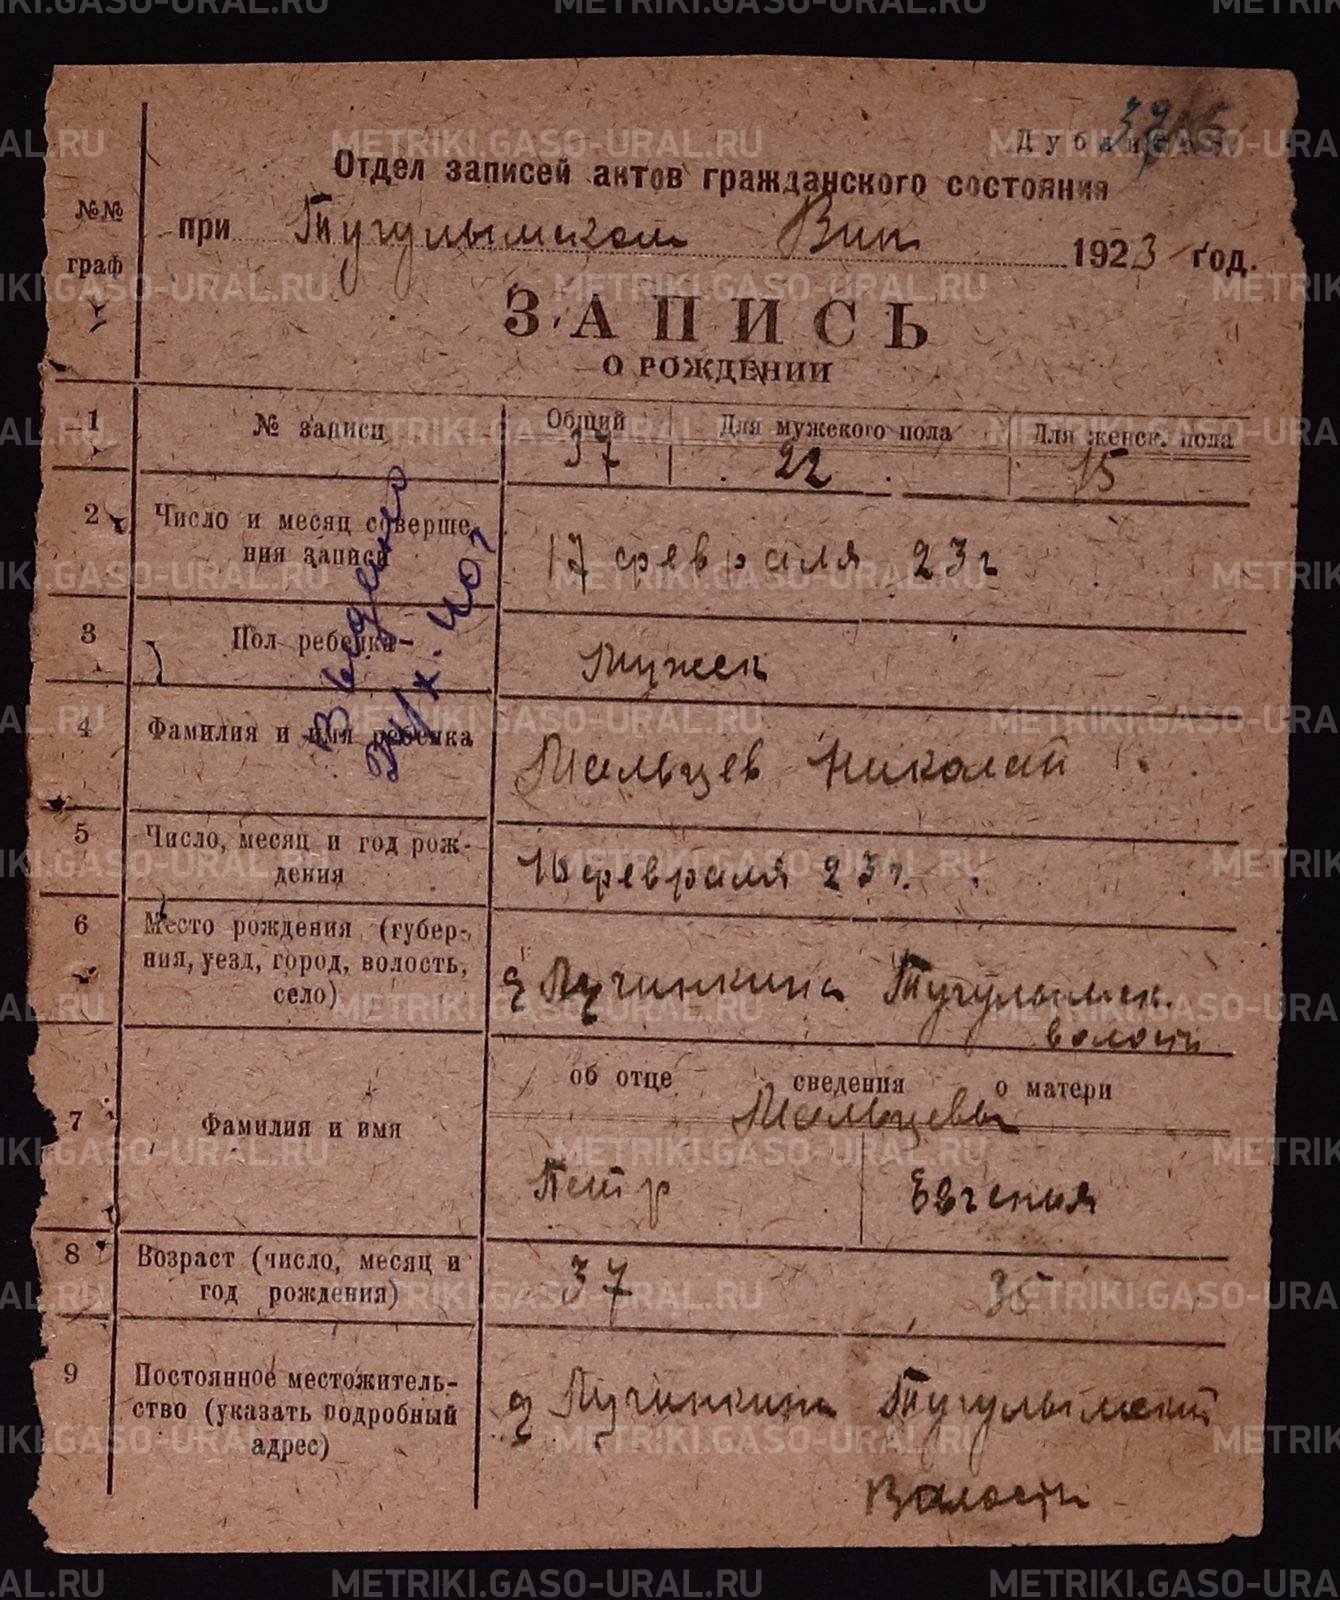 Дубликат.
Отдел записей актов гражданского состояния
при Тугулымском Вик 1923 год.
№№ граф
ЗАПИСЬ
О РОЖДЕНИИ
1 № записи Общий Для мужского пола Для женск. пола
37 22 15
2 Число и месяц соверше-
ния записи
17 февраля 23 г
3 Пол ребенка
Мужск
4 Фамилия и имя ребенка
Мальцев Николай
Выдано
5 Число, месяц и год рож-
дения
февраля 23 г.
6 Место рождения (губер-
ния, уезд, город, волость,
село)
д Лучинкина Тугулымск.
волости
об отце сведения о матери
7 Фамилия и имя
Мальцевы
Петр Евгения
8 Возраст (число, месяц и
год рождения)
37
9 Постоянное местожитель-
ство (указать подробный
адрес)
д Лучинкина Тугулымский
Волости
METRIKI.GASO-URAL.RU